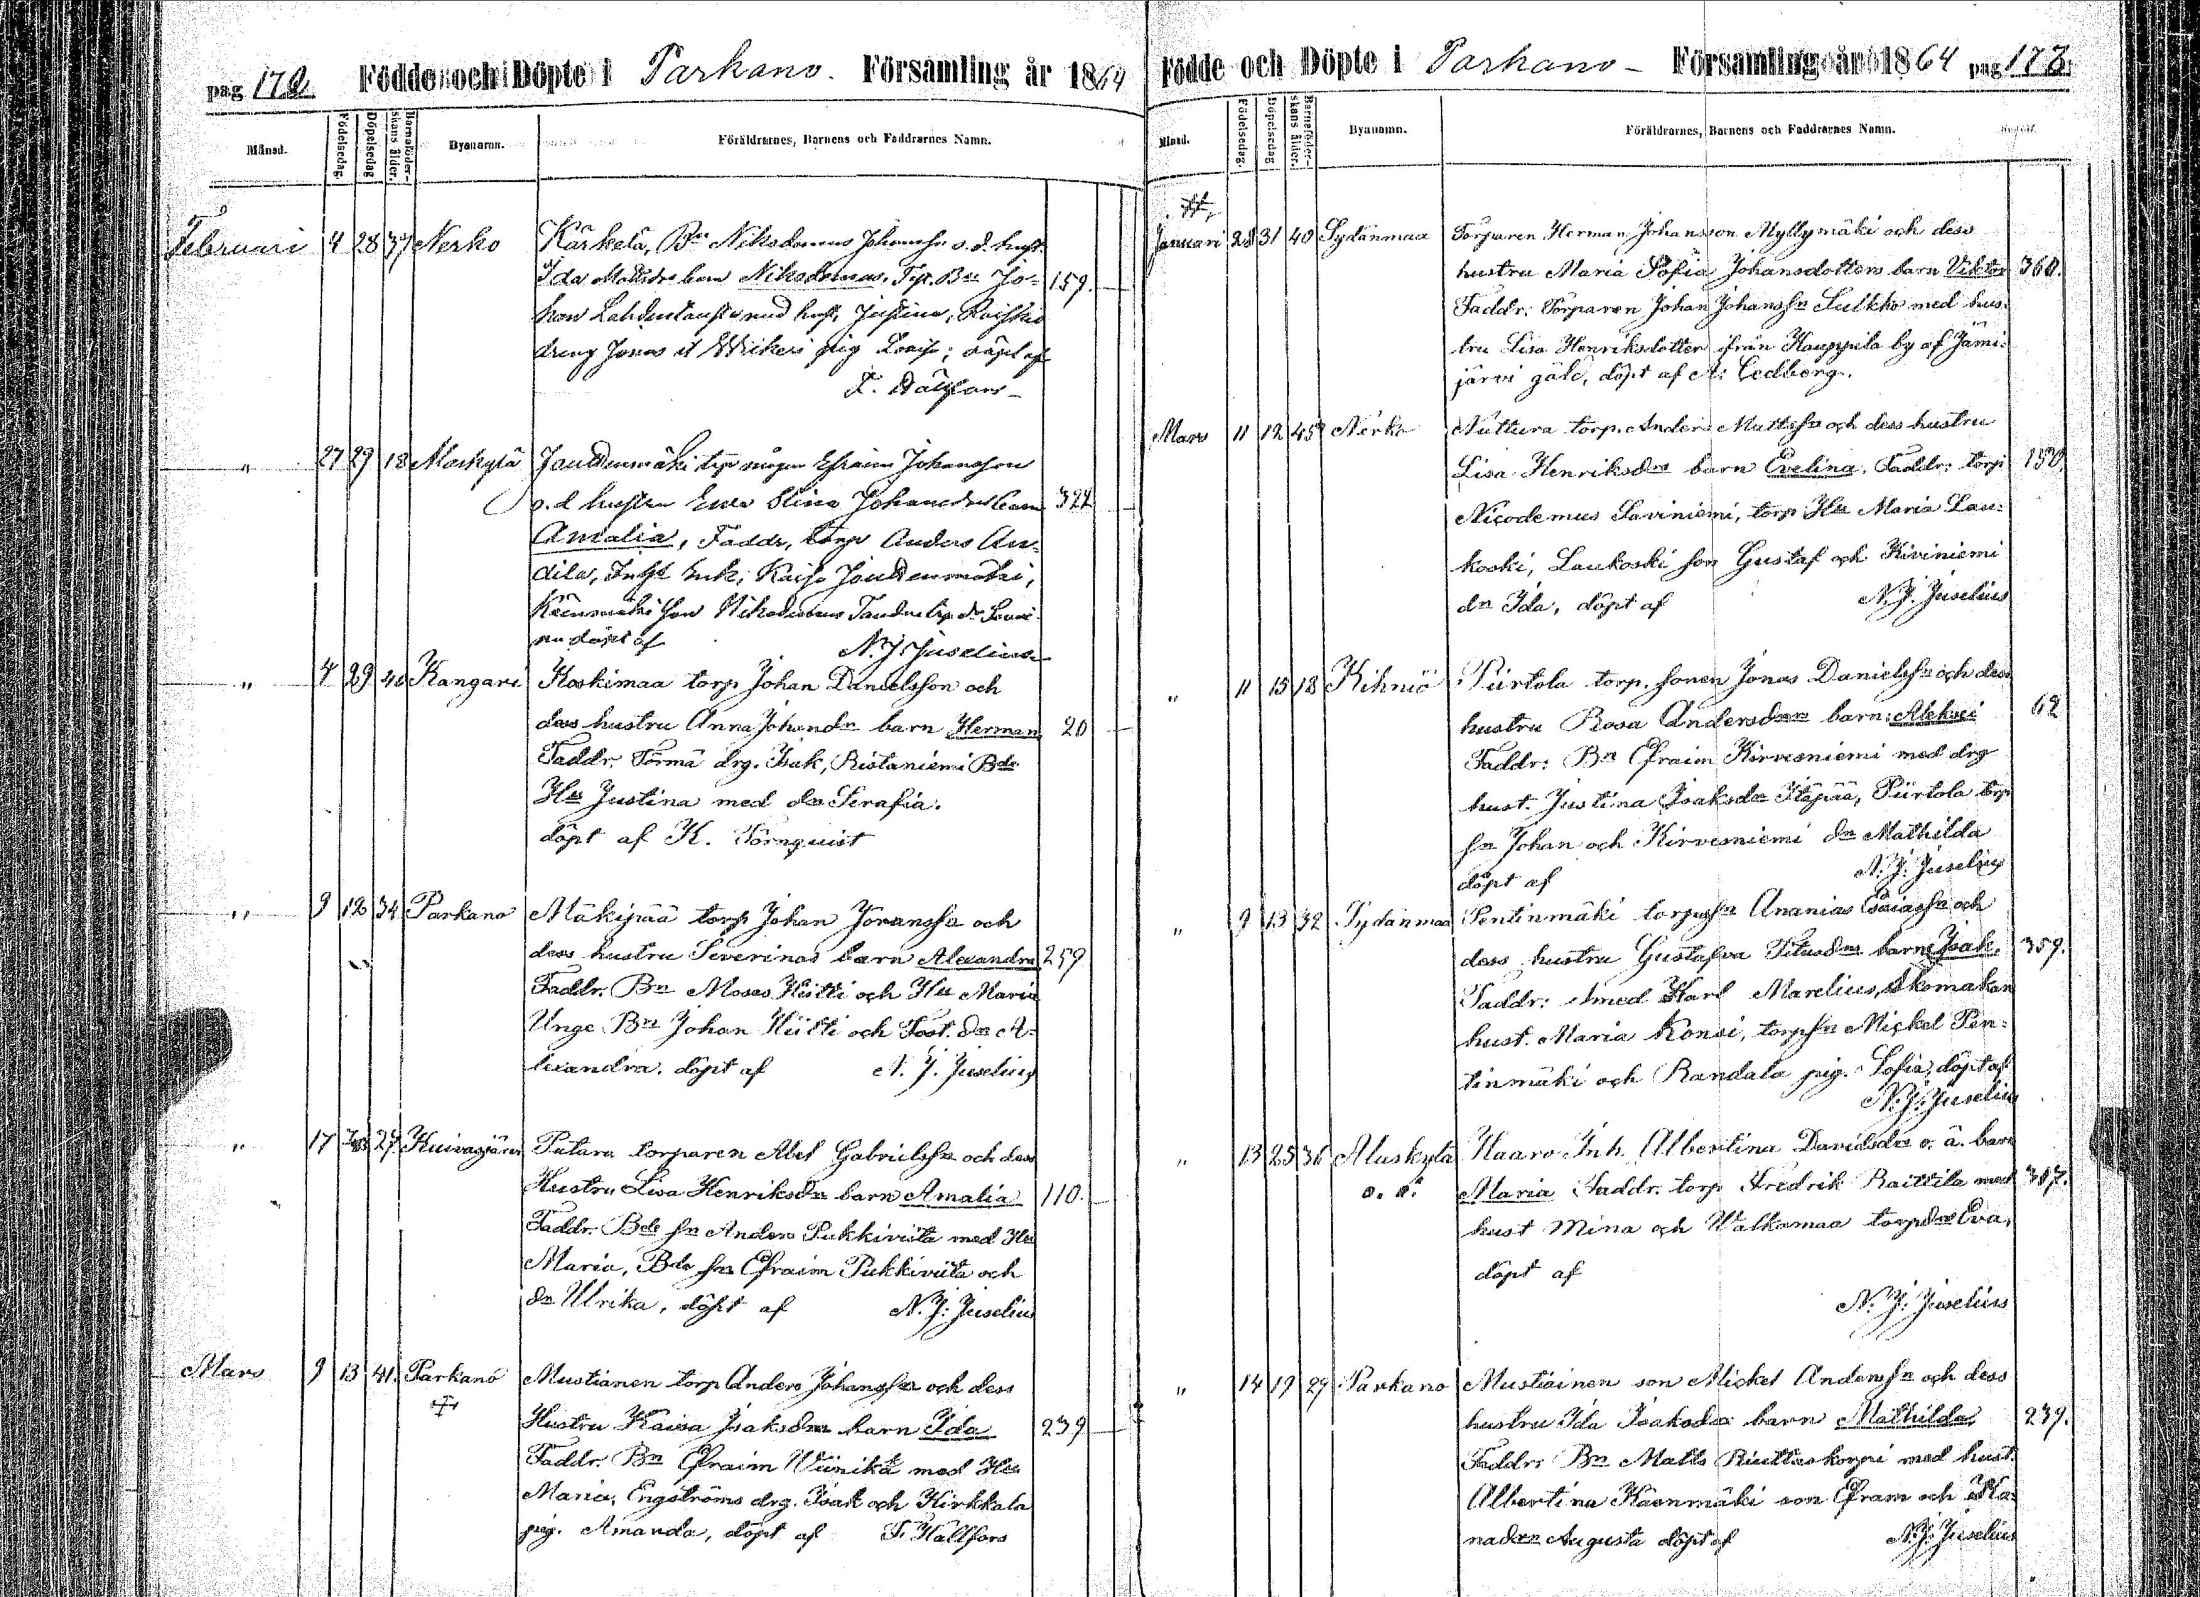 pag 172. Födde och Döpte i Parkano. Församling år 1864
Månad. Födelsedag. Döpelsedag Barnaföderskans ålder. Byanamn. Föräldrarnes, Barnens och Faddrarnes Namn.
Februari 4 28 37 Nerko Kärkelä, Bn Nikodemus Johanssn o. d. hust.
Ida Mattsdrs barn Nikodemus. Trp. Bn Jo- 159.
han Lahdenlausta med hust, Justina, Raiskio
dreng Jonas
pig döpt af
27 29 18 Alaskylä Jouttenmäki Efraim Johansson
o. d hustru Eva Stina Johansdrs barn 322
Amalia, Faddr, torp Anders An-
dila, Kaisa Jouttenmäki,
Käenmäki son Nikodemus
döpt af N. J. Juselius
" 4 29 40 Kangari Koskimaa torp Johan Danielsson och
dess hustru Anna Johandr barn Herman 20
Faddr. Törmä drg. Isak, Ristaniemi Bde
Hu Justina med dr Serafia.
döpt af K. Törnquist
" 9 12 34 Parkano Mäkipää torp Johan Joranssn och
dess hustru Severinas barn Alexandra 259
Faddr. Bn Moses Hütti och Hu Maria
Unge Bn Johan Hütti och Fost. dr A-
lexandra. döpt af N. J. Juselius
" 17 27 Kuivasjärvi Patara torparen Abel Gabrielssn och dess
Hustru Lisa Henriksdrs barn Amalia 110.
Faddr. Bde sn Anders Pukkiviita med Hu
Maria, Bde sn Efraim Pukkiviita och
dr Ulrika, döpt af N. J. Juselius
Mars 9 13 41. Parkano Mustianen torp Anders Johanssn och dess
Hustru Kaisa Isaksdrs barn Ida 239
Faddr. Bn Efraim Viinikä med Hu
Maria, Engströms drg. Isak och Kirkkala
pig. Amanda, döpt af F. Hällfors
Födde och Döpte i Parkano - Församling år 1864 pag 173.
Månad. Födelsedag. Döpelsedag Barnaföderskans ålder. Byanamn. Föräldrarnes, Barnens och Faddrarnes Namn.
Januari 28 31 40 Sydänmaa Torparen Herman Johansson Myllymäki och dess
hustru Maria Sofia Johansdotters barn Viktor 360.
Faddr. Torparen Johan Johanssn Sulkko med hus-
tru Lisa Henriksdotter ifrån Kauppila by af Jämi-
järvi gäld, döpt af A: Cedberg.
Mars 11 12 45 Nerko Nuttura torp. Anders Mattssn och dess hustru
Lisa Henriksdrs barn Evelina. Faddr: torp 150.
Nicodemus Saviniemi, torp Hu Maria Lau-
koski, Laukoski son Gustaf och Kiviniemi
dr Ida, döpt af N. J. Juselius
" 11 15 18 Kihniö Piirtola torp. sonen Jonas Danielssn och dess
hustru Rosa Andersdrs barn: Aleksei 62
Faddr: Bn Efraim Kirvesniemi med drg
hust. Justina Isaksdr Itäpää, Piirtola torp
sn Johan och Kirvesniemi dr Mathilda
döpt af N. J. Juselius
" 9 13 32 Sydänmaa Pentinmäki torpsn Ananias Esaiassn och
dess hustru Gustafva Titusdrs barn Isak. 359.
Faddr: smed Karl Marelius, Skomakar
hust. Maria Konsi, torpsn Mickel Pen-
tinmäki och Randala pig. Sofia, döpt af
N. J. Juselius
" 13 25 36 Alaskylä Haaro Inh. Albertina Davidsdrs o. ä. barn
o. ä. Maria Faddr. torp Fredrik Raittila med 307.
hust Mina och Walkamaa torpdr Eva,
döpt af
N. J. Juselius
" 14 19 29 Parkano Mustiainen son Mickel Anderssn och dess
hustru Ida Isaksdrs barn Mathilda, 239.
Faddr: Bn Matts Riuttaskorpi med hust.
Albertina Käenmäki son Efram och
Augusta döpt af N. J. Juselius